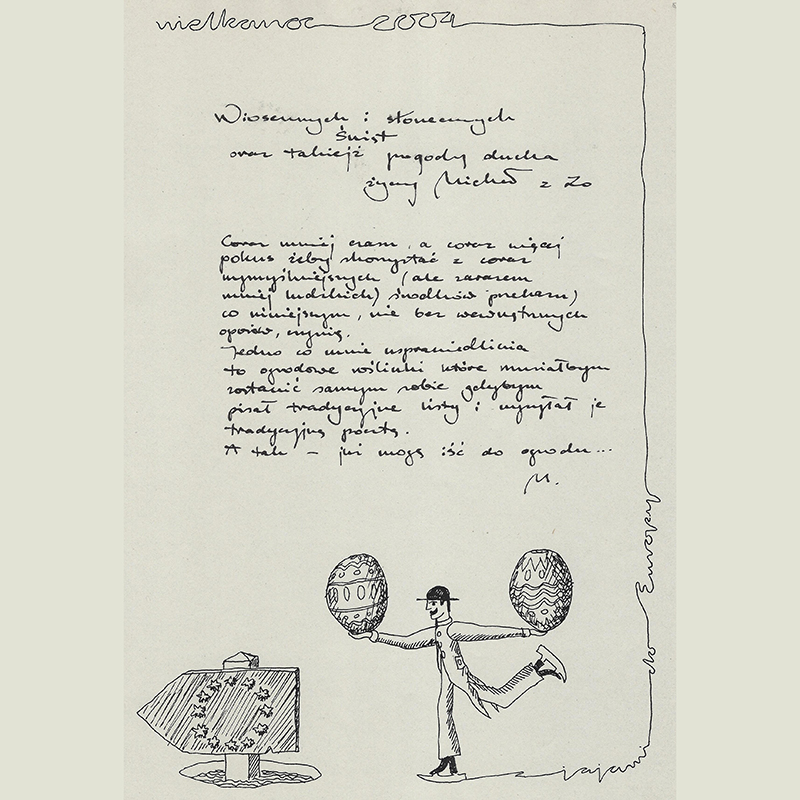 wielkanoc 2004
Wiosennych i słonecznych
Świąt
oraz takiejż pogody ducha
życzy Michał z Zo
Coraz mniej czasu, a coraz więcej
pokus żeby skorzystać z coraz
wymyślniejszych (ale zarazem
mniej ludzkich) środków przekazu)
co niniejszym, nie bez wewnętrznych
oporów, czynię.
Jedno co mnie usprawiedliwia
to ogrodowe roślinki które musiałbym
zostawić samym sobie gdybym
pisał tradycyjne listy i wysyłał je
tradycyjną pocztą.
A tak – już mogę iść do ogrodu...
M.
z jajami do Europy